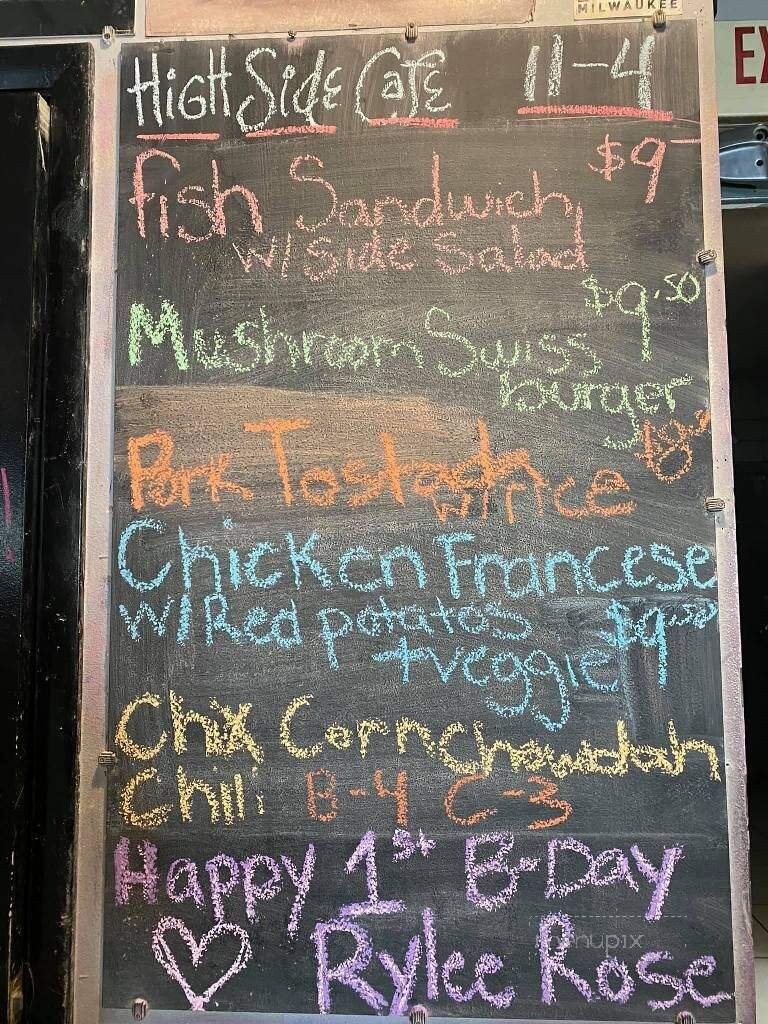 MILWAUKEE
EX
HiGH Side CaFE 11-4
fish Sandwich $9-
w/ Side Salad
$9.50
Mushroom Swiss
burger
Pork Tostada
w/rice
Chicken Francese
w/Red potatos $9.50
+veggie
Chix Cornchowdah
Chili B-4 C-3
Happy 1st B-Day
Rylee Rose
menupix